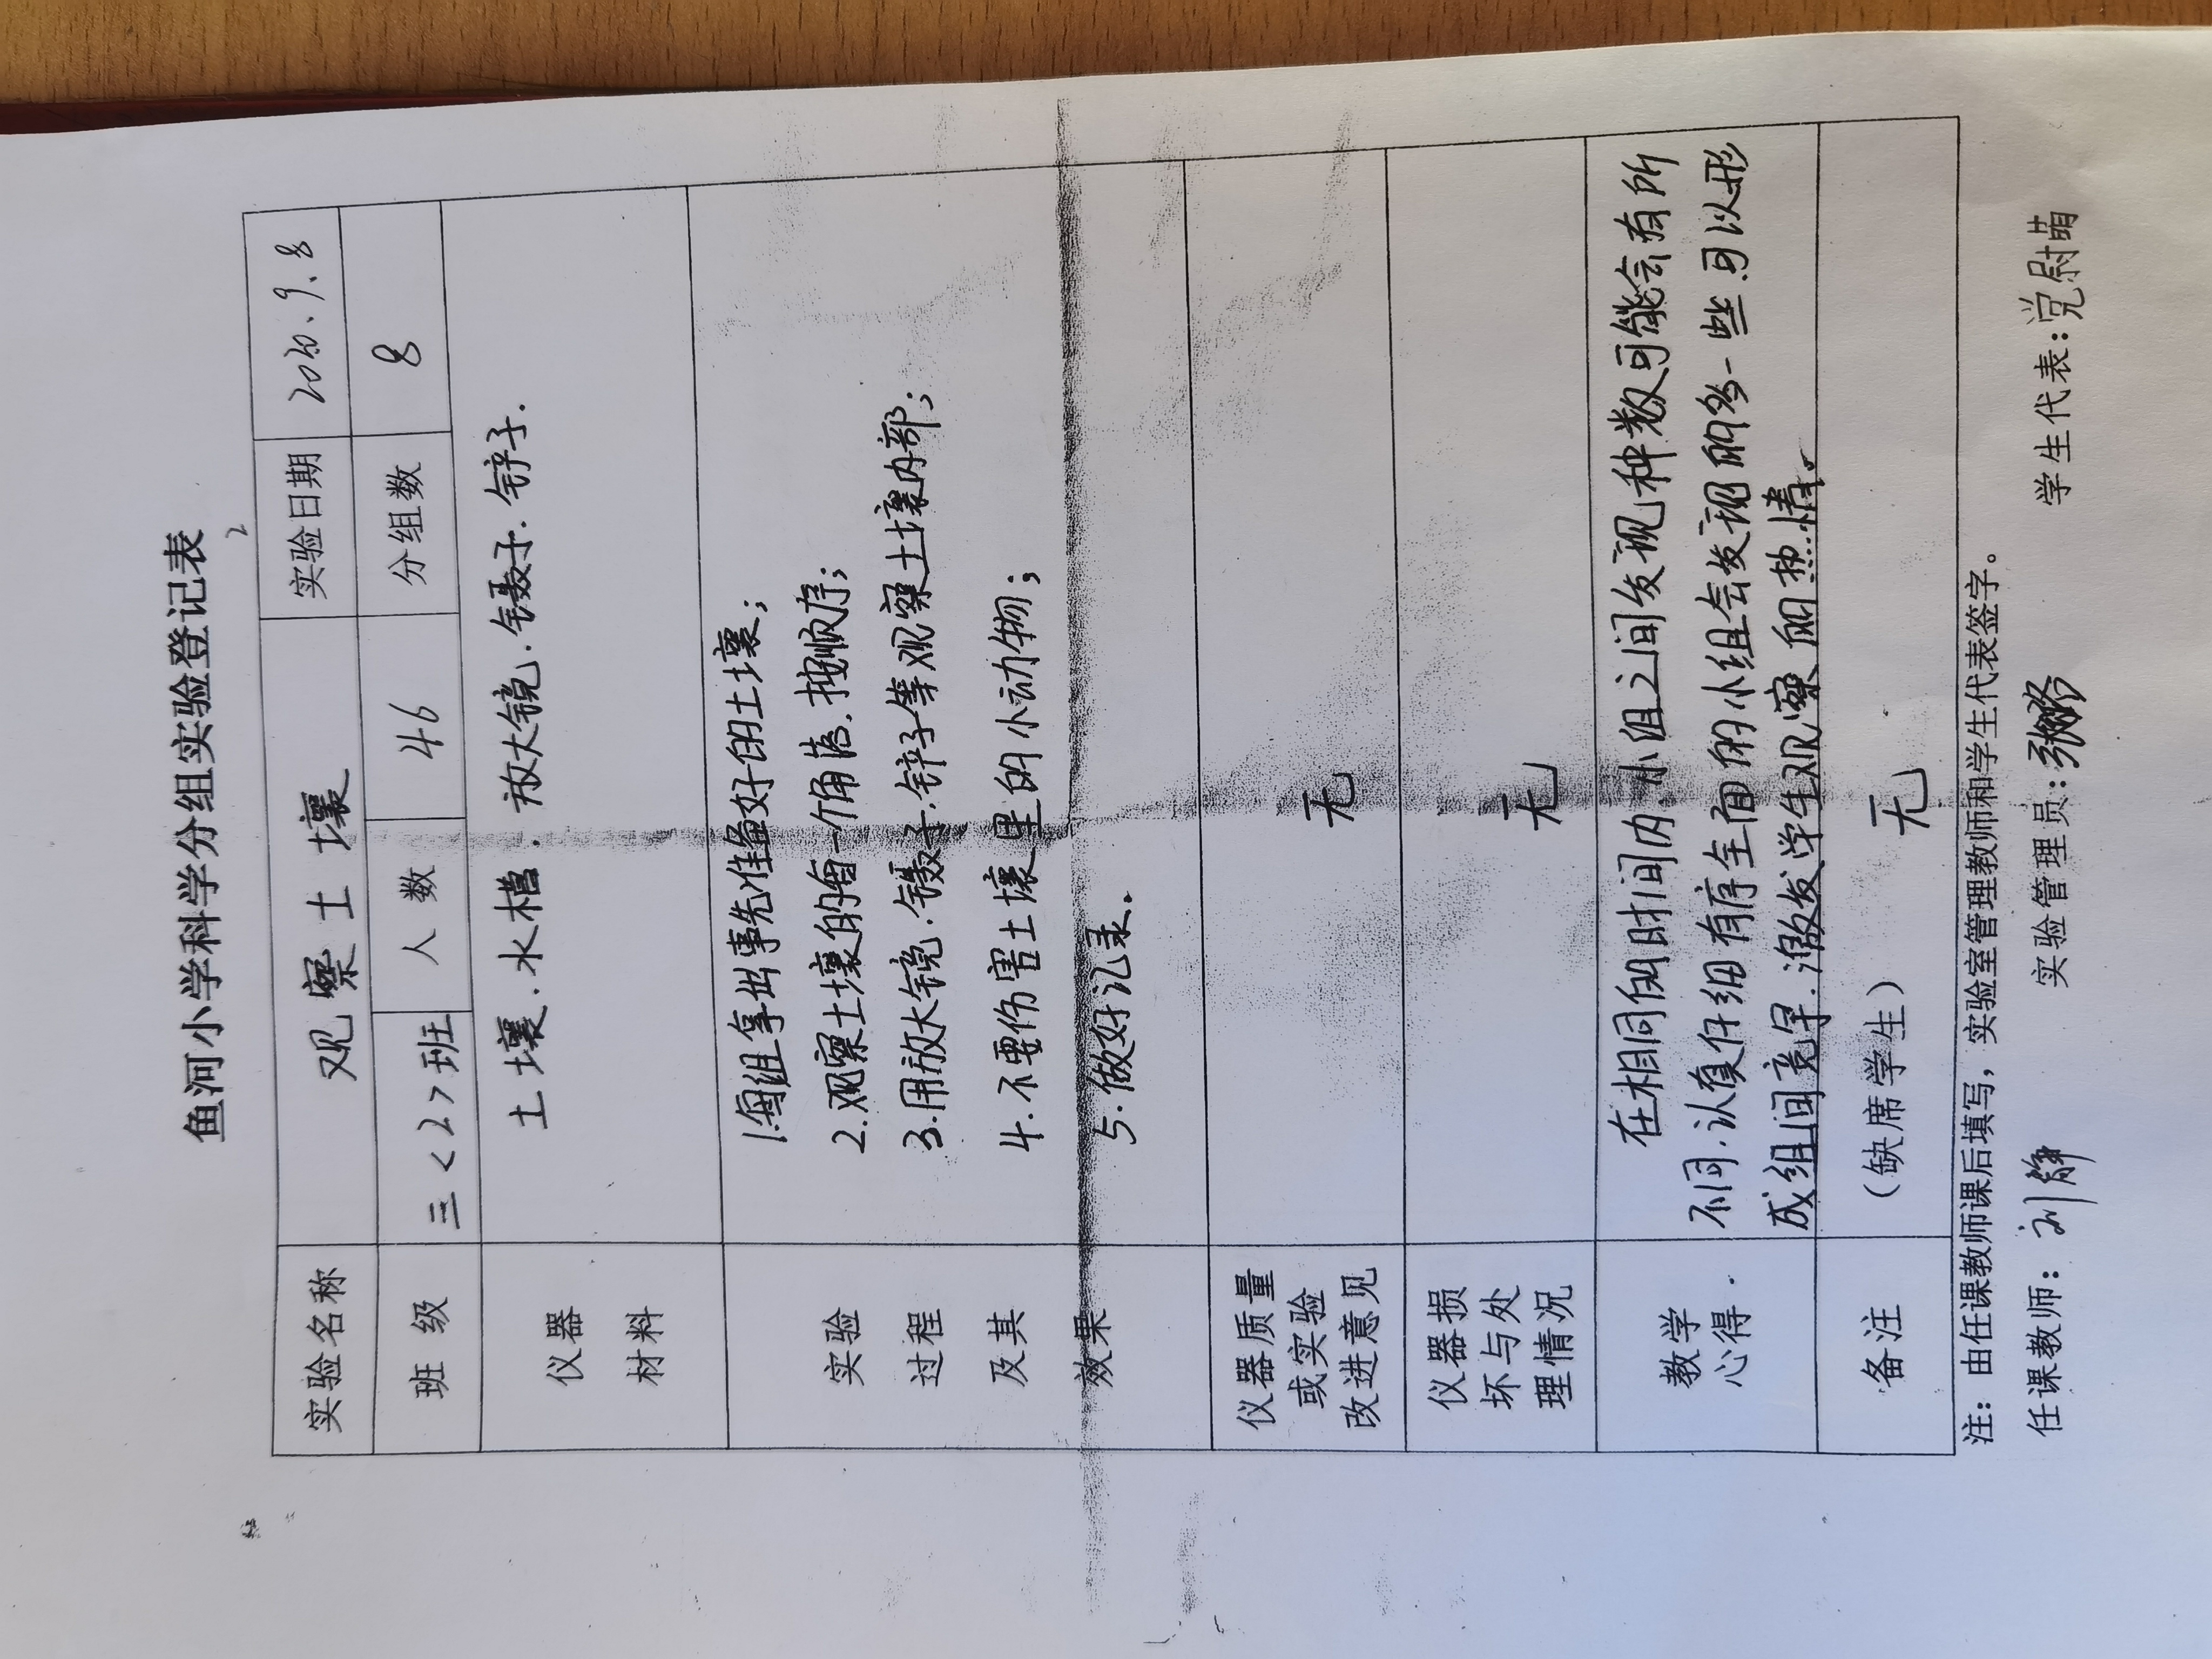 鱼河小学科学分组实验登记表
2
实验名称 观察土壤 实验日期 2020.9.8
班 级 三<2>班 人 数 46 分组数 8
仪器
材料
土壤.水槽.放大镜.镊子.锌子.
实验
过程
及其
效果
1.每组拿出事先准备好的土壤;
2.观察土壤的每一个角落.按顺序;
3.用放大镜.镊子.锌子等观察土壤内部;
4.不要伤害土壤里的小动物;
5.做好记录.
仪器质量
或实验
改进意见
无
仪器损
坏与处
理情况
无
教学
心得.
在相同的时间内.小组之间发现种数可能会有所
不同.认真仔细有序全面的小组会发现的多一些.可以形
成组间竞争.激发学生观察的热情。
备注
(缺席学生) 无
注:由任课教师课后填写,实验室管理教师和学生代表签字。
任课教师:刘静 实验管理员: 学生代表:党尉萌